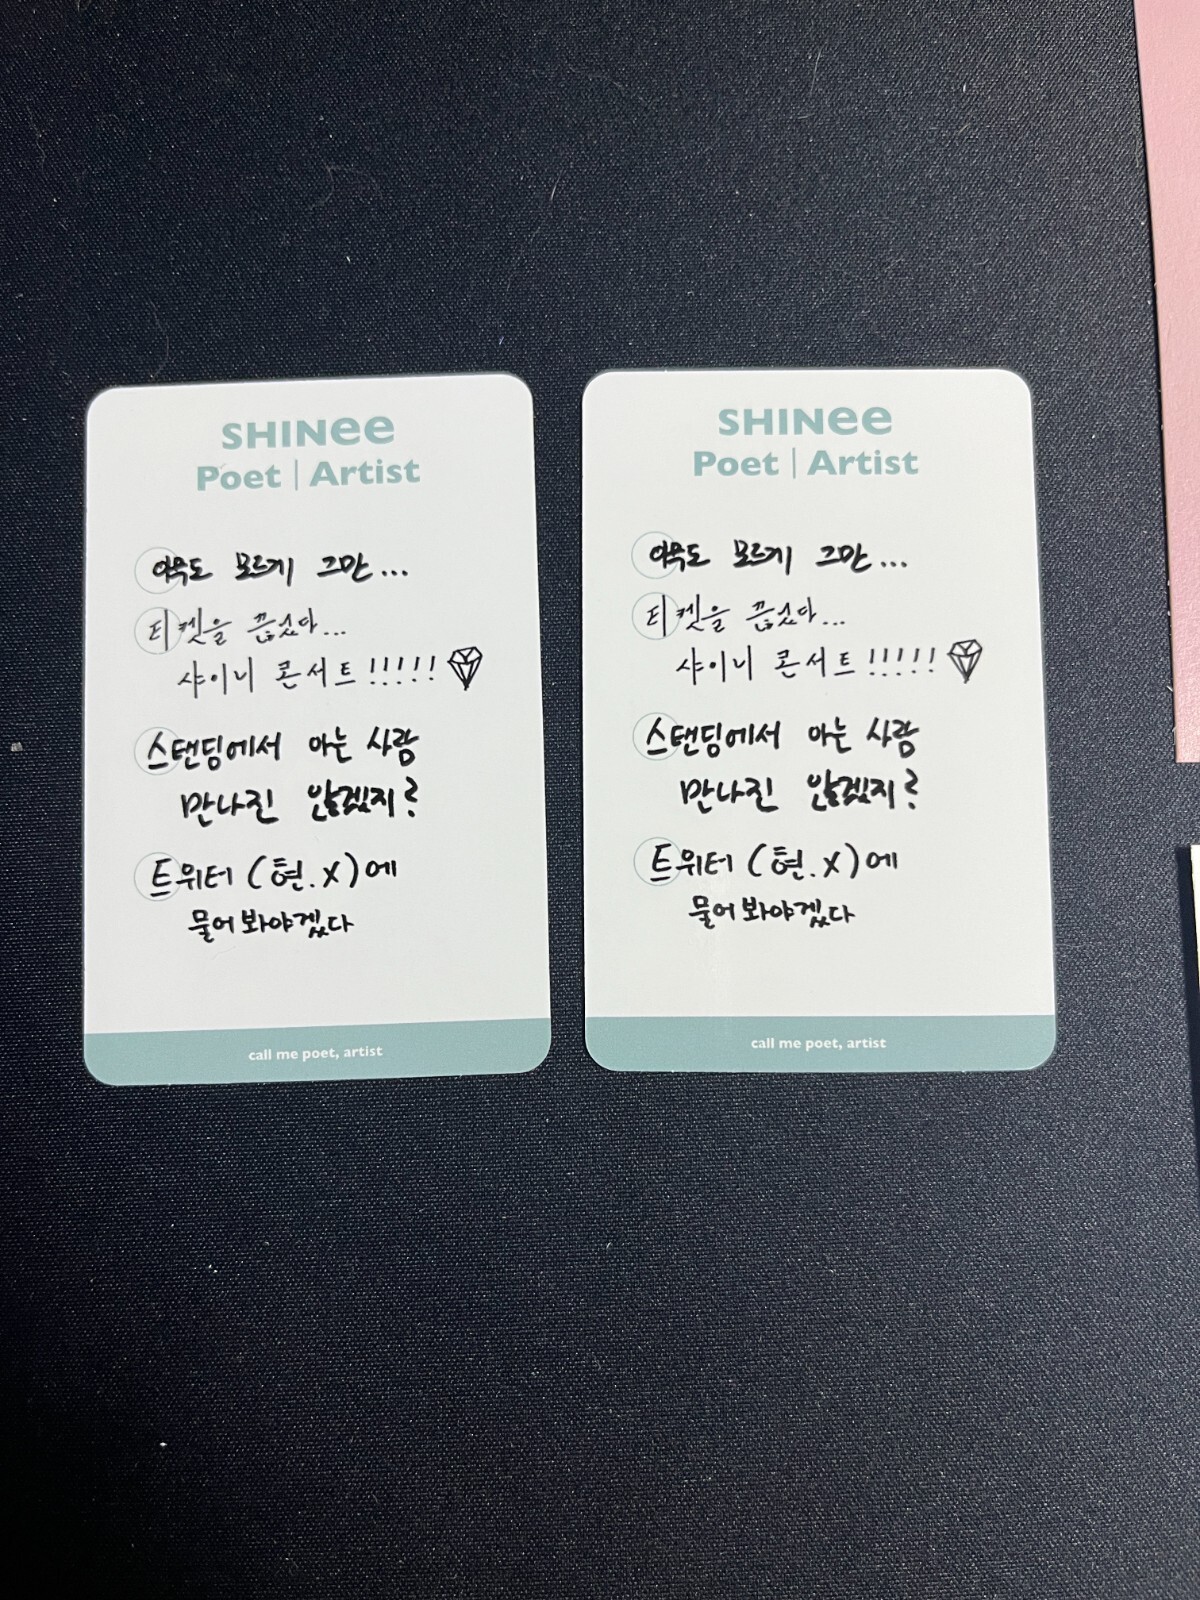 SHINee
Poet | Artist
아무도 모르게 그만...
티켓을 끊었다...
샤이니 콘서트!!!!!
스탠딩에서 아는 사람
만나진 않겠지?
트위터 (현.X)에
물어봐야겠다
call me poet, artist
SHINee
Poet | Artist
아무도 모르게 그만...
티켓을 끊었다...
샤이니 콘서트!!!!!
스탠딩에서 아는 사람
만나진 않겠지?
트위터 (현.X)에
물어봐야겠다
call me poet, artist